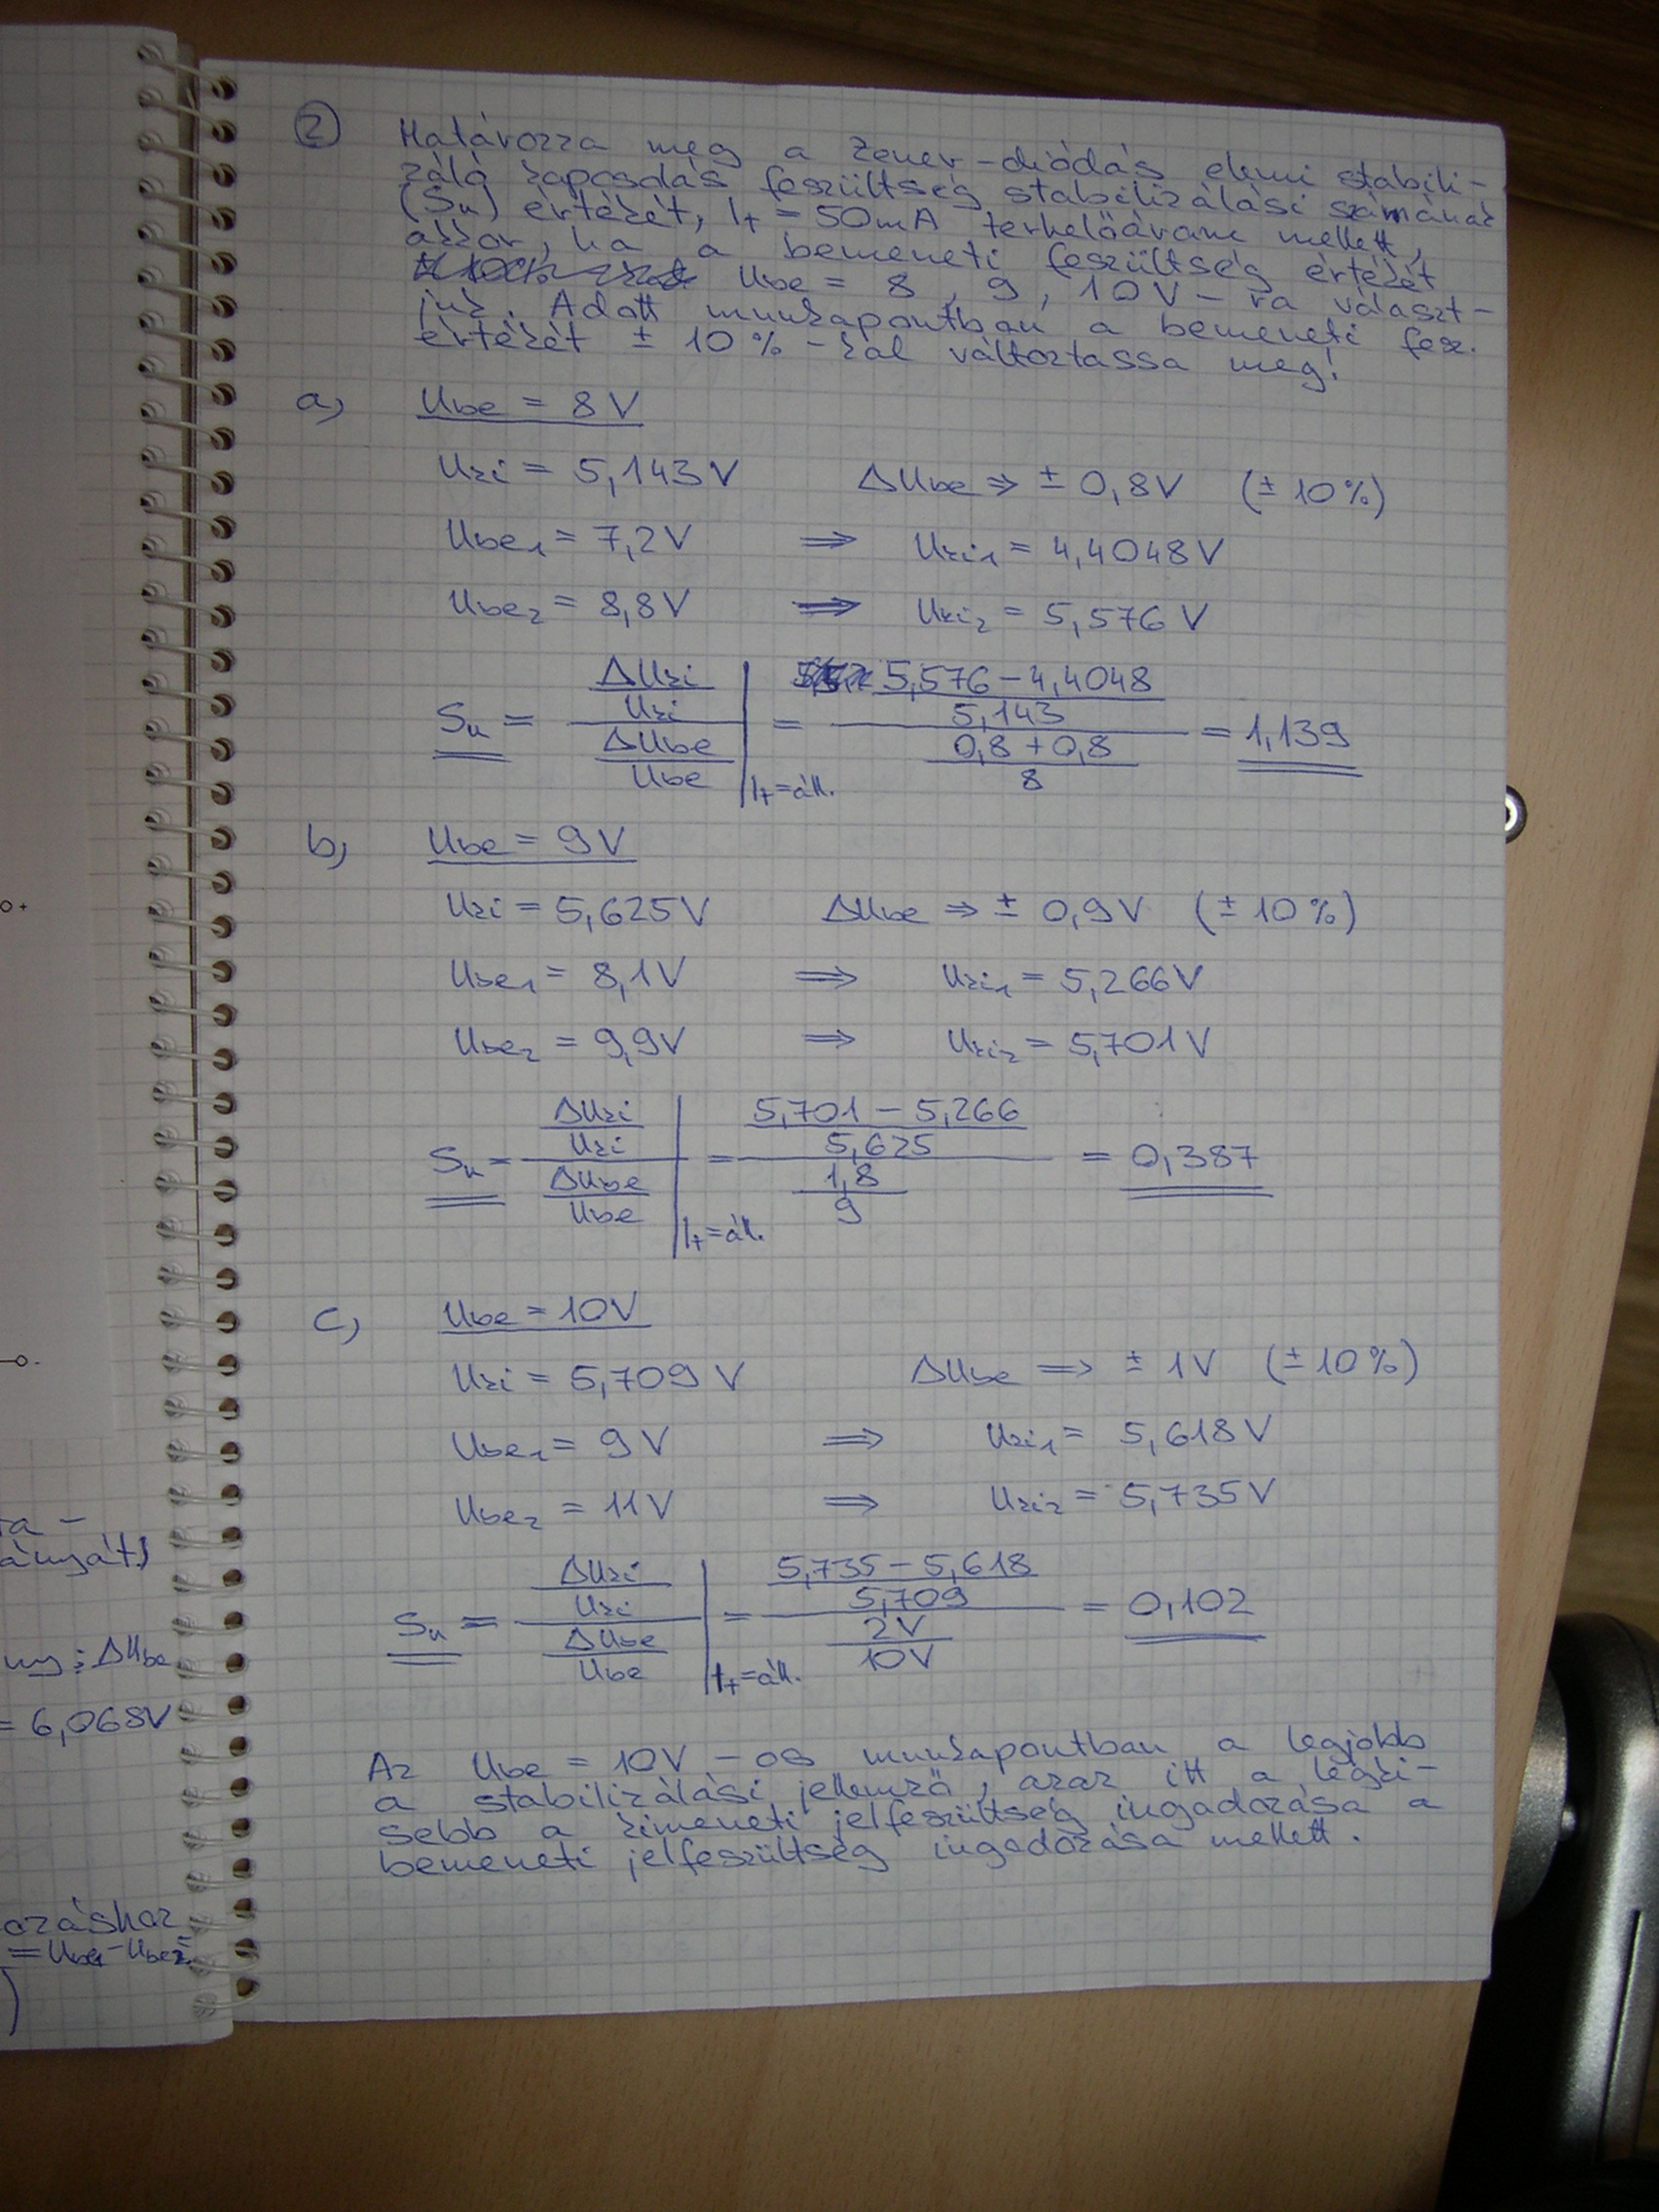 ② Határozza meg a Zener-diódás elemi stabili-
záló kapcsolás feszültség stabilizálási számának
(Su) értékét, It = 50mA terhelőáram mellett,
akkor, ha a bemeneti feszültség értékét
Ube = 8, 9, 10V-ra választ-
juk. Adott munkapontban a bemeneti fesz.
értékét ± 10%-kal változtassa meg!
a, Ube = 8V
Uki = 5,143V ΔUbe ⇒ ± 0,8V (± 10%)
Ube1 = 7,2V ⇒ Uki1 = 4,4048V
Ube2 = 8,8V ⇒ Uki2 = 5,576V
ΔUki 5,576 - 4,4048
Uki 5,143
Su = = = 1,139
ΔUbe 0,8 + 0,8
Ube It=áll. 8
b, Ube = 9V
Uki = 5,625V ΔUbe ⇒ ± 0,9V (± 10%)
Ube1 = 8,1V ⇒ Uki1 = 5,266V
Ube2 = 9,9V ⇒ Uki2 = 5,701V
ΔUki 5,701 - 5,266
Uki 5,625
Su = = = 0,387
ΔUbe 1,8
Ube It=áll. 9
c, Ube = 10V
Uki = 5,709V ΔUbe ⇒ ± 1V (± 10%)
Ube1 = 9V ⇒ Uki1 = 5,618V
Ube2 = 11V ⇒ Uki2 = 5,735V
ΔUki 5,735 - 5,618
Uki 5,709
Su = = = 0,102
ΔUbe 2V
Ube It=áll. 10V
Az Ube = 10V-os munkapontban a legjobb
a stabilizálási jellemző, azaz itt a legki-
sebb a kimeneti jelfeszültség ingadozása a
bemeneti jelfeszültség ingadozása mellett.
ΔUbe
= 6,068V
= Ube1-Ube2=